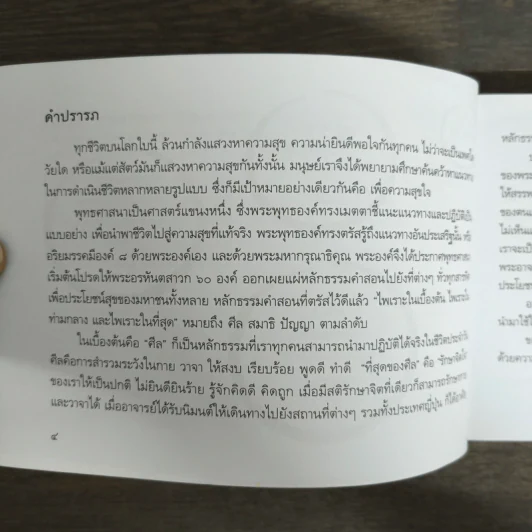 คำปรารภ
ทุกชีวิตบนโลกใบนี้ ล้วนกำลังแสวงหาความสุข ความน่ายินดีพอใจกันทุกคน ไม่ว่าจะเป็นเพศใด
วัยใด หรือแม้แต่สัตว์มันก็แสวงหาความสุขกันทั้งนั้น มนุษย์เราจึงได้พยายามศึกษาค้นคว้าหาแนวทาง
ในการดำเนินชีวิตหลากหลายรูปแบบ ซึ่งก็มีเป้าหมายอย่างเดียวกันคือ เพื่อความสุขใจ
พุทธศาสนาเป็นศาสตร์แขนงหนึ่ง ซึ่งพระพุทธองค์ทรงเมตตาชี้แนะแนวทางและปฏิบัติเป็น
แบบอย่าง เพื่อนำพาชีวิตไปสู่ความสุขที่แท้จริง พระพุทธองค์ทรงตรัสรู้ถึงแนวทางอันประเสริฐนั้น หรือ
อริยมรรคมีองค์ ๘ ด้วยพระองค์เอง และด้วยพระมหากรุณาธิคุณ พระองค์จึงได้ประกาศพุทธศาสนา
เริ่มต้นโปรดให้พระอรหันตสาวก ๖๐ องค์ ออกเผยแผ่หลักธรรมคำสอนไปยังที่ต่างๆ ทั่วทุกสารทิศ
เพื่อประโยชน์สุขของมหาชนทั้งหลาย หลักธรรมคำสอนที่ตรัสไว้ดีแล้ว "ไพเราะในเบื้องต้น ไพเราะใน
ท่ามกลาง และไพเราะในที่สุด" หมายถึง ศีล สมาธิ ปัญญา ตามลำดับ
ในเบื้องต้นคือ "ศีล" ก็เป็นหลักธรรมที่เราทุกคนสามารถนำมาปฏิบัติได้จริงในชีวิตประจำวัน
ศีลคือการสำรวมระวังในกาย วาจา ให้สงบ เรียบร้อย พูดดี ทำดี "ที่สุดของศีล" คือ "รักษาจิตใจ"
ของเราให้เป็นปกติ ไม่ยินดียินร้าย รู้จักคิดดี คิดถูก เมื่อมีสติรักษาจิตที่เดียวก็สามารถรักษากาย
และวาจาได้ เมื่ออาจารย์ได้รับนิมนต์ให้เดินทางไปยังสถานที่ต่างๆ รวมทั้งประเทศญี่ปุ่น ก็ได้
๔
หลักธรรม
ของพระ
ให้สรรพ
ของตน
ไม่เห็น
เราจะเป็น
ของพระ
ประโยช
นำมาใช้
ด้วยความ